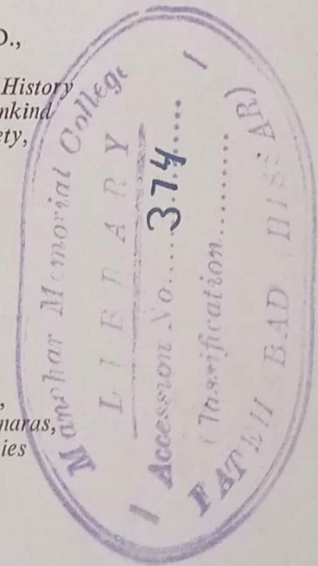 D.,
History
nkind
ety,
,
naras,
ies
Manohar Memorial College
LIBRARY
Accession No.....374......
Classification............
FATEHABAD (HISSAR)